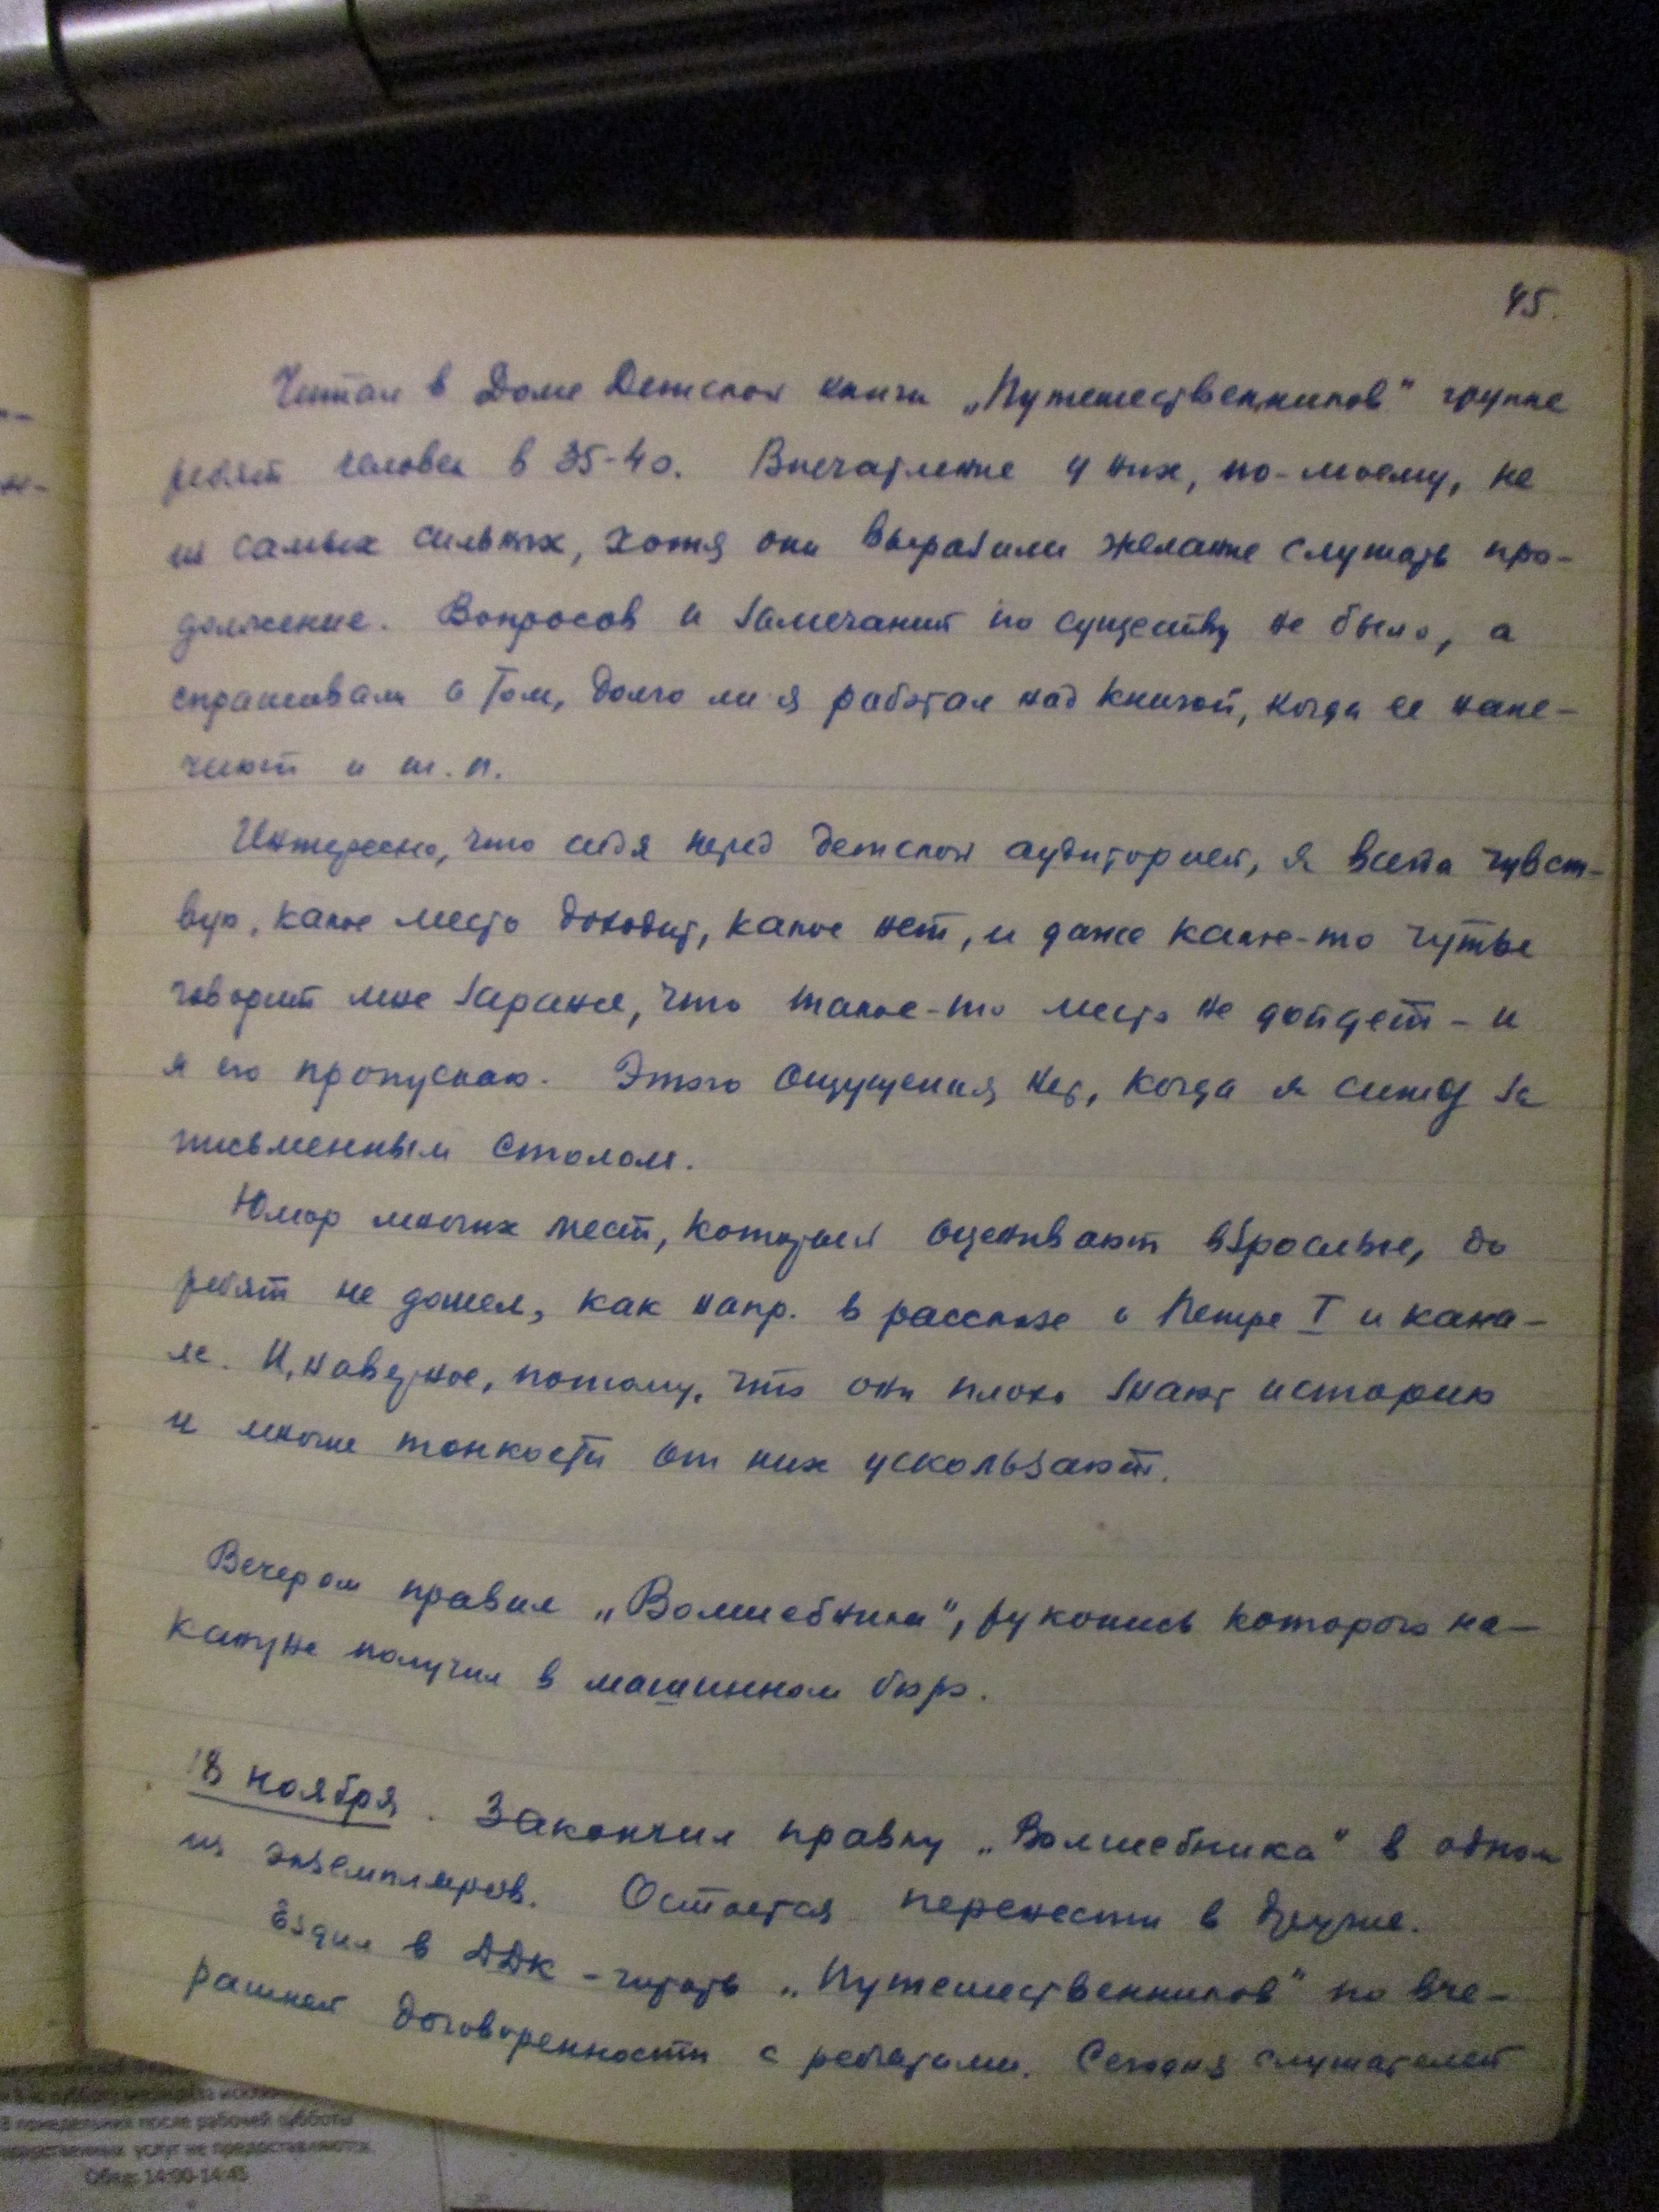 45.
Читал в Доме Детской книги „Путешественников" группе
ребят человек в 35-40. Впечатление у них, по-моему, не
из самых сильных, хотя они выразили желание слушать про-
должение. Вопросов и замечаний по существу не было, а
спрашивали о том, долго ли я работал над книгой, когда ее напе-
чатают и т.п.
Интересно, что сидя перед детской аудиторией, я всегда чувст-
вую, какое место доходит, какое нет, и даже какое-то чутье
говорит мне заранее, что такое-то место не дойдет - и
я его пропускаю. Этого ощущения нет, когда я сижу за
письменным столом.
Юмор многих мест, который оценивают взрослые, до
ребят не дошел, как напр. в рассказе о Петре I и кана-
ле. И, наверное, потому, что они плохо знают историю
и многие тонкости от них ускользают.
Вечером правил „Волшебника", рукопись которого на-
кануне получил в машинном бюро.
18 ноября. Закончил правку „Волшебника" в одном
из экземпляров. Остается перенести в другие.
Ездил в ДДК - читать „Путешественников" по вче-
рашней договоренности с ребятами. Сегодня слушателей
В понедельник после рабочей субботы
услуг не предоставляются.
Обед: 14:00-14:45